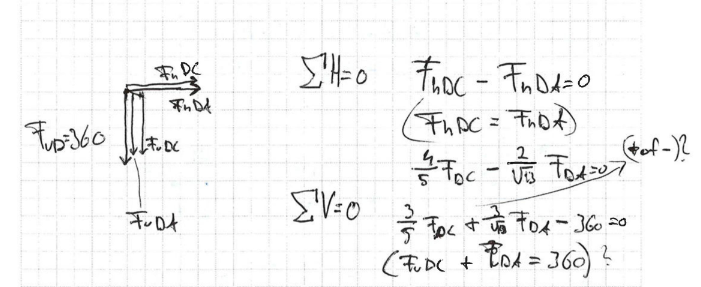 FhDC
FhDA
FvD=360
FvDC
FvDA
ΣH=0 FhDC - FhDA=0
(FhDC = FhDA)
4/5 FDC - 2/√13 FDA=0 (+ of -)?
ΣV=0 3/5 FDC + 3/√13 FDA - 360=0
(FvDC + FvDA = 360)?